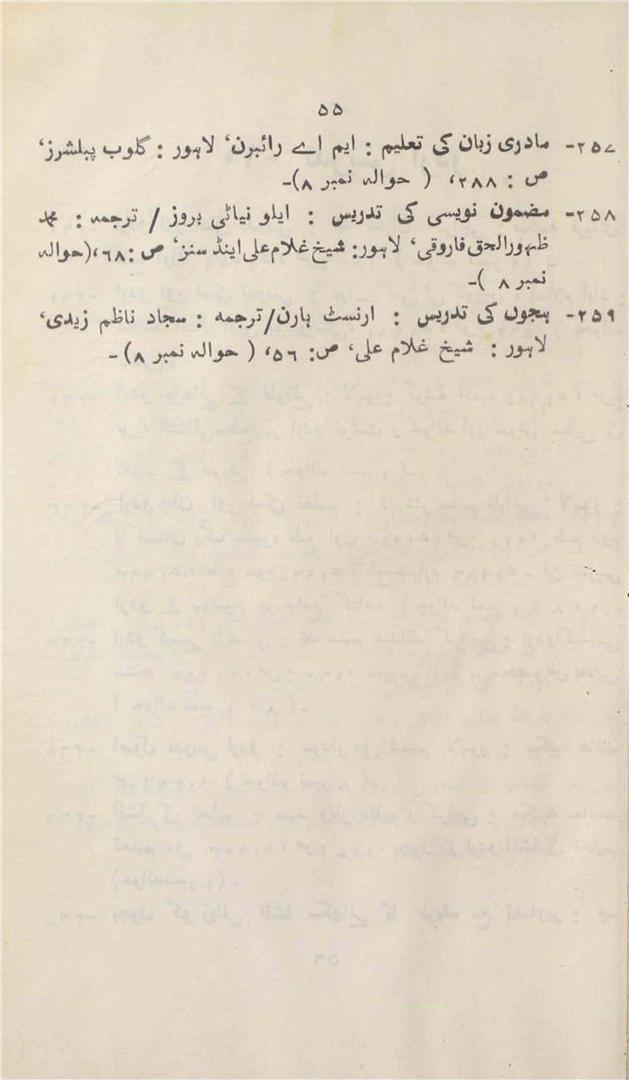 ۵۵
۲۵۷- مادری زبان کی تعلیم : ایم اے رائبرن، لاہور : گلوب پبلشرز،
ص : ۲۸۸، ( حوالہ نمبر ۸)-
۲۵۸- مضمون نویسی کی تدریس : ایلو نیاٹی بروز / ترجمہ : محمد
ظہورالحق فاروقی، لاہور: شیخ غلام علی اینڈ سنز، ص : ۶۸،(حوالہ
نمبر ۸ )-
۲۵۹- ہجوں کی تدریس : ارنسٹ ہارن/ترجمہ : سجاد ناظم زیدی،
لاہور : شیخ غلام علی، ص: ۵۶، ( حوالہ نمبر ۸) -